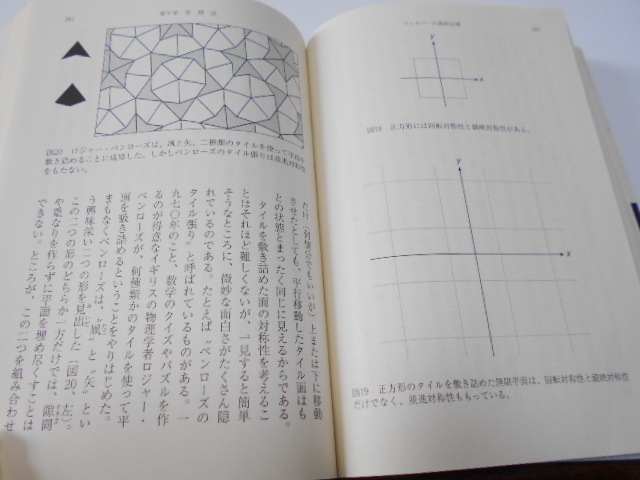 第Ⅴ章
y
x
図18 正方形には回転対称性と鏡映対称性がある。
y
x
図19 正方形のタイルを敷き詰めた無限平面は、回転対称性と鏡映対称性
だけでなく、並進対称性ももっている。
図20 ロジャー・ペンローズは、凧と矢、二種類のタイルを使って平面を
敷き詰めることに成功した。しかしペンローズのタイル張りは並進対称性
をもたない。
だけ(何個分でもいいが)上または下に移動
させたとしても、平行移動したタイル面はも
との状態とまったく同じに見えるからである。
タイルを敷き詰めた面の対称性を考えるこ
とはそれほど難しくないが、一見すると簡単
そうなところに、微妙な面白さがたくさん隠
れているのである。たとえば〝ペンローズの
タイル張り〟と呼ばれているものがある。一
九七〇年のこと、数学のクイズやパズルを作
るのが得意なイギリスの物理学者ロジャー・
ペンローズが、何種類かのタイルを使って平
面を敷き詰めるということをやりはじめた。
まもなくペンローズは、〝凧〟と〝矢〟とい
う興味深い二つの形を見出した(図20、左)。
この二つの形のどちらか一方だけでは、隙間
や重なりを作らずに平面を埋め尽くすことは
できない。ところが、この二つを組み合わせ